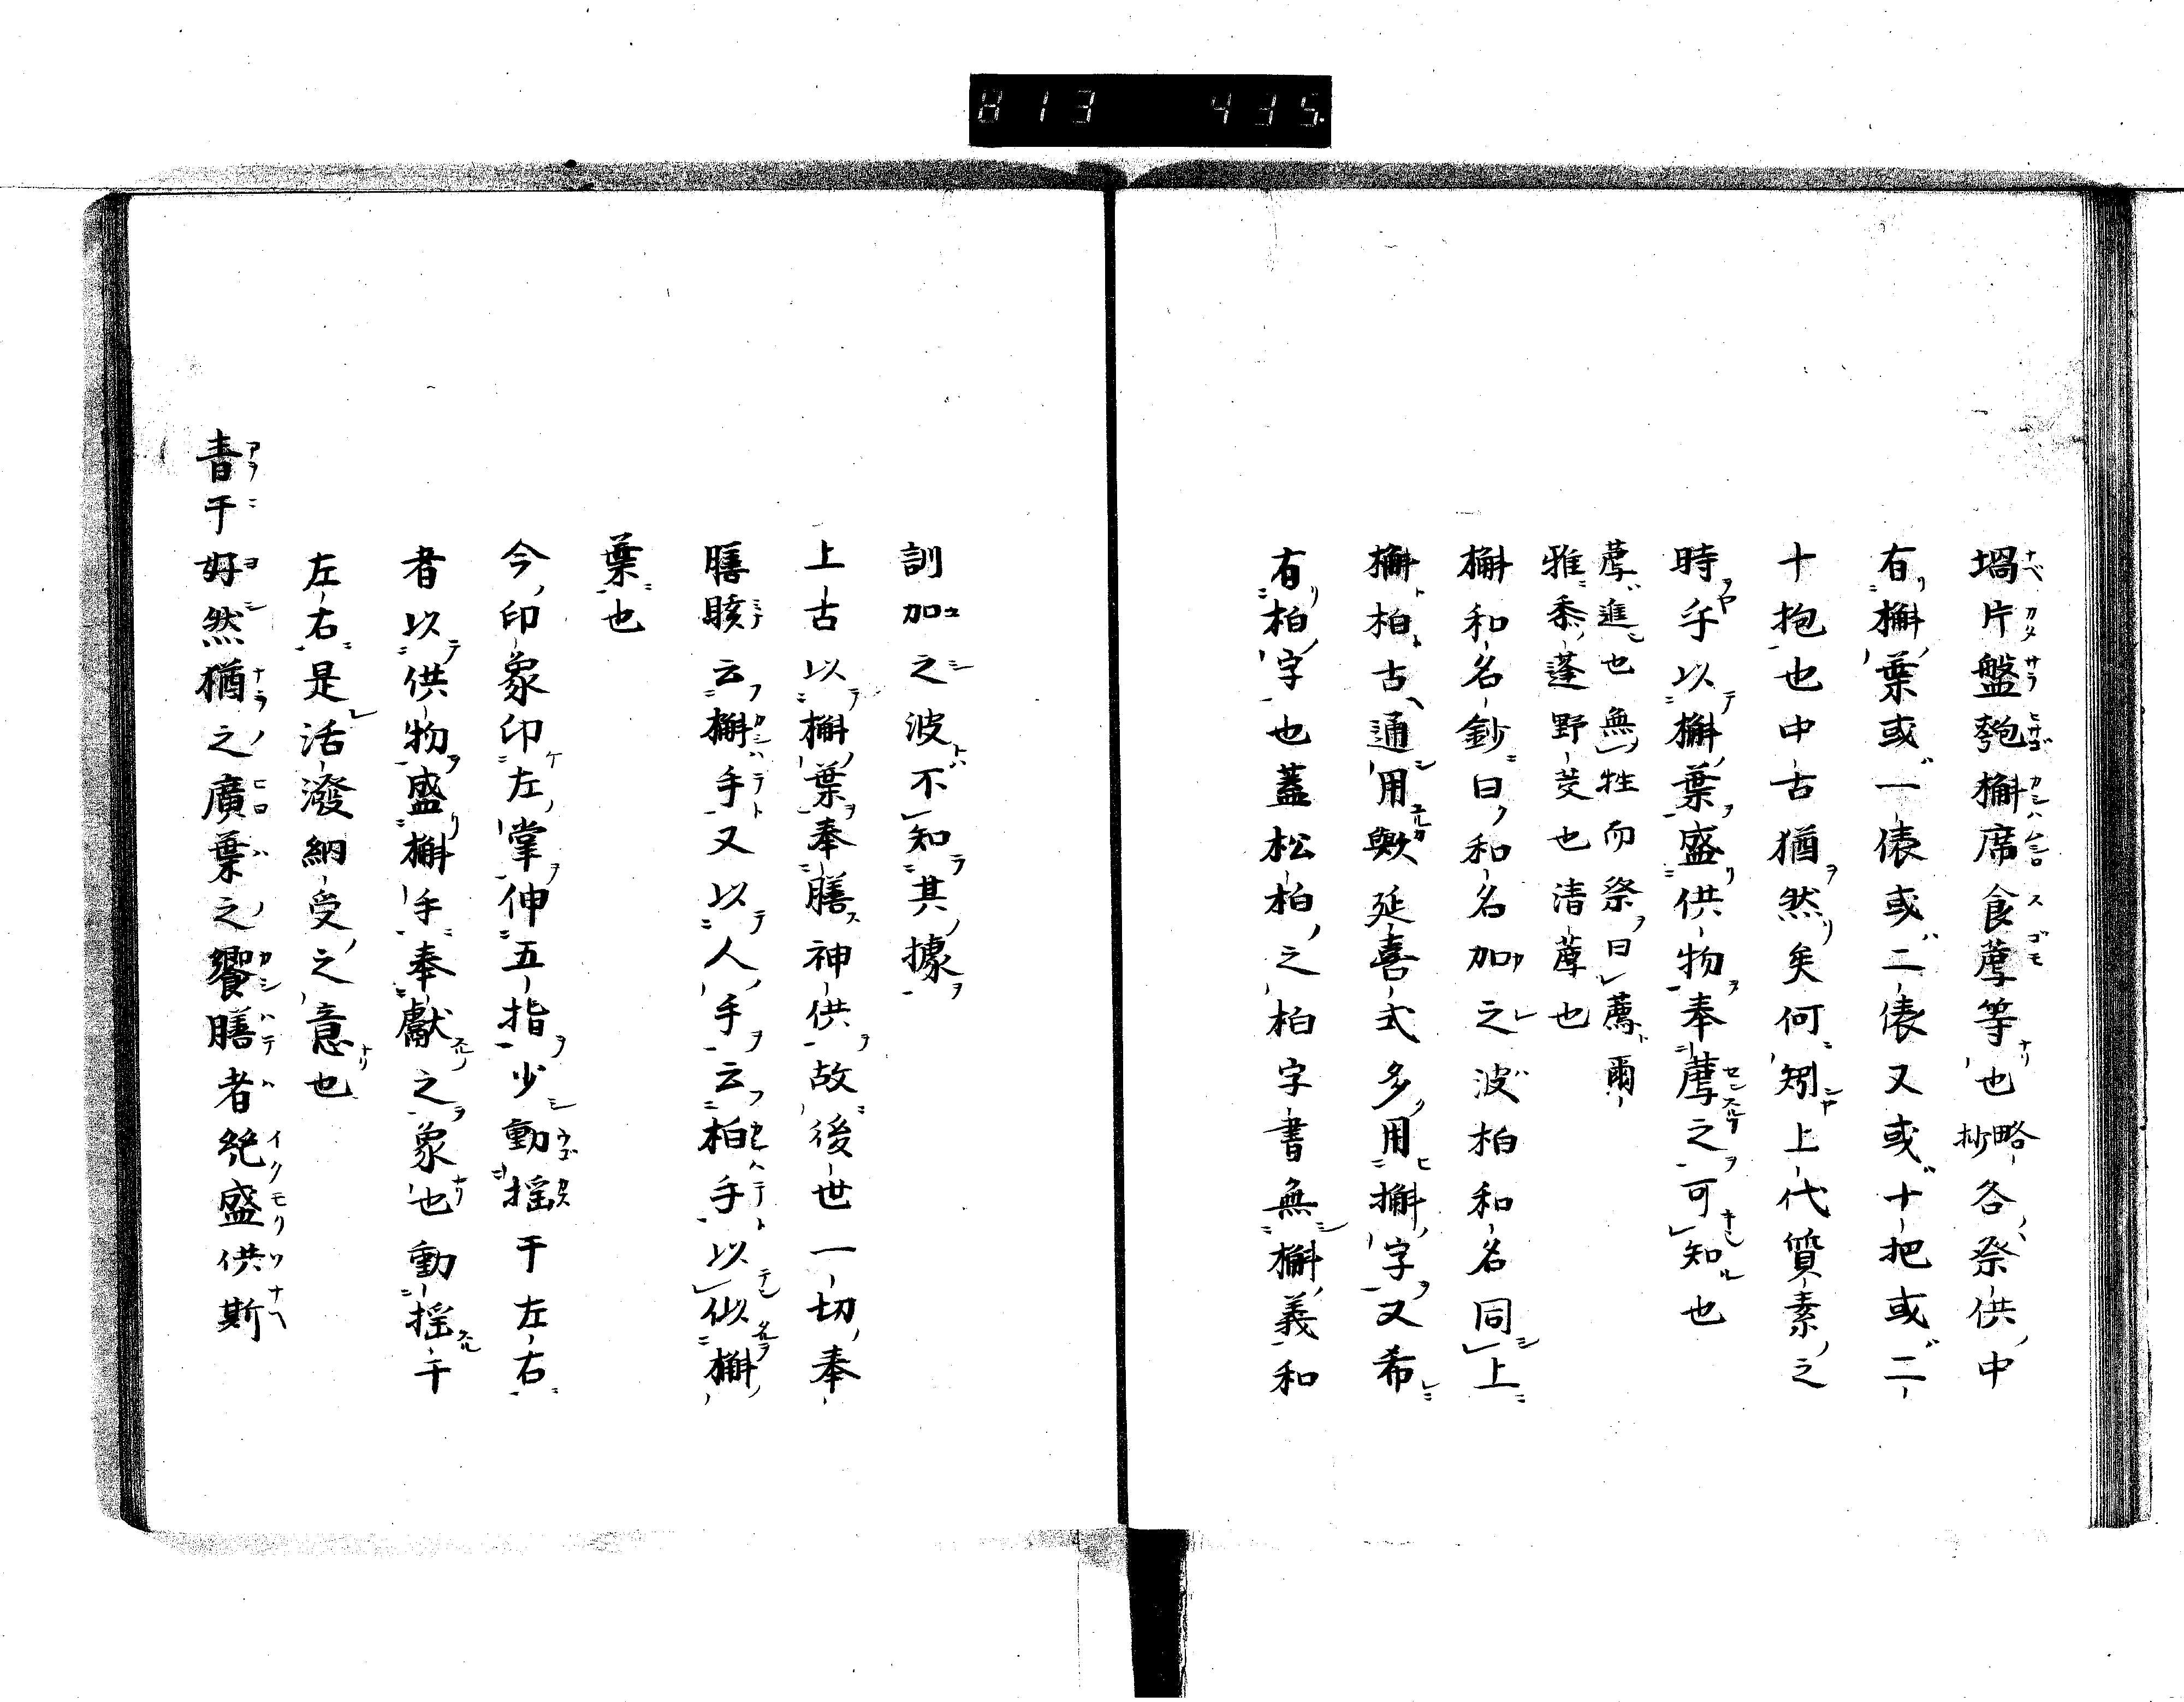 813 435
堝片盤匏槲席食薦等也略抄各祭供中
有槲葉或一俵或二俵又或十把或二
十抱也中古猶然矣何矧上代質素之
時乎以槲葉盛供物奉薦之可知也
薦進也無牲而祭曰薦爾
雅黍蓬野茭也清薦也
槲和名鈔曰和名加之波柏和名同上
槲柏古通用歟延喜式多用槲字又希
有柏字也蓋松柏之柏字書無槲義和
訓加之波不知其據
上古以槲葉奉膳神供故後世一切奉
膳晐云槲手又以人手云柏手以似槲
葉也
今印象印左掌伸五指少動搖于左右
者以供物盛槲手奉獻之象也動搖于
左右是活潑納受之意也
青于好然猶之廣葉之饗膳者盛供斯